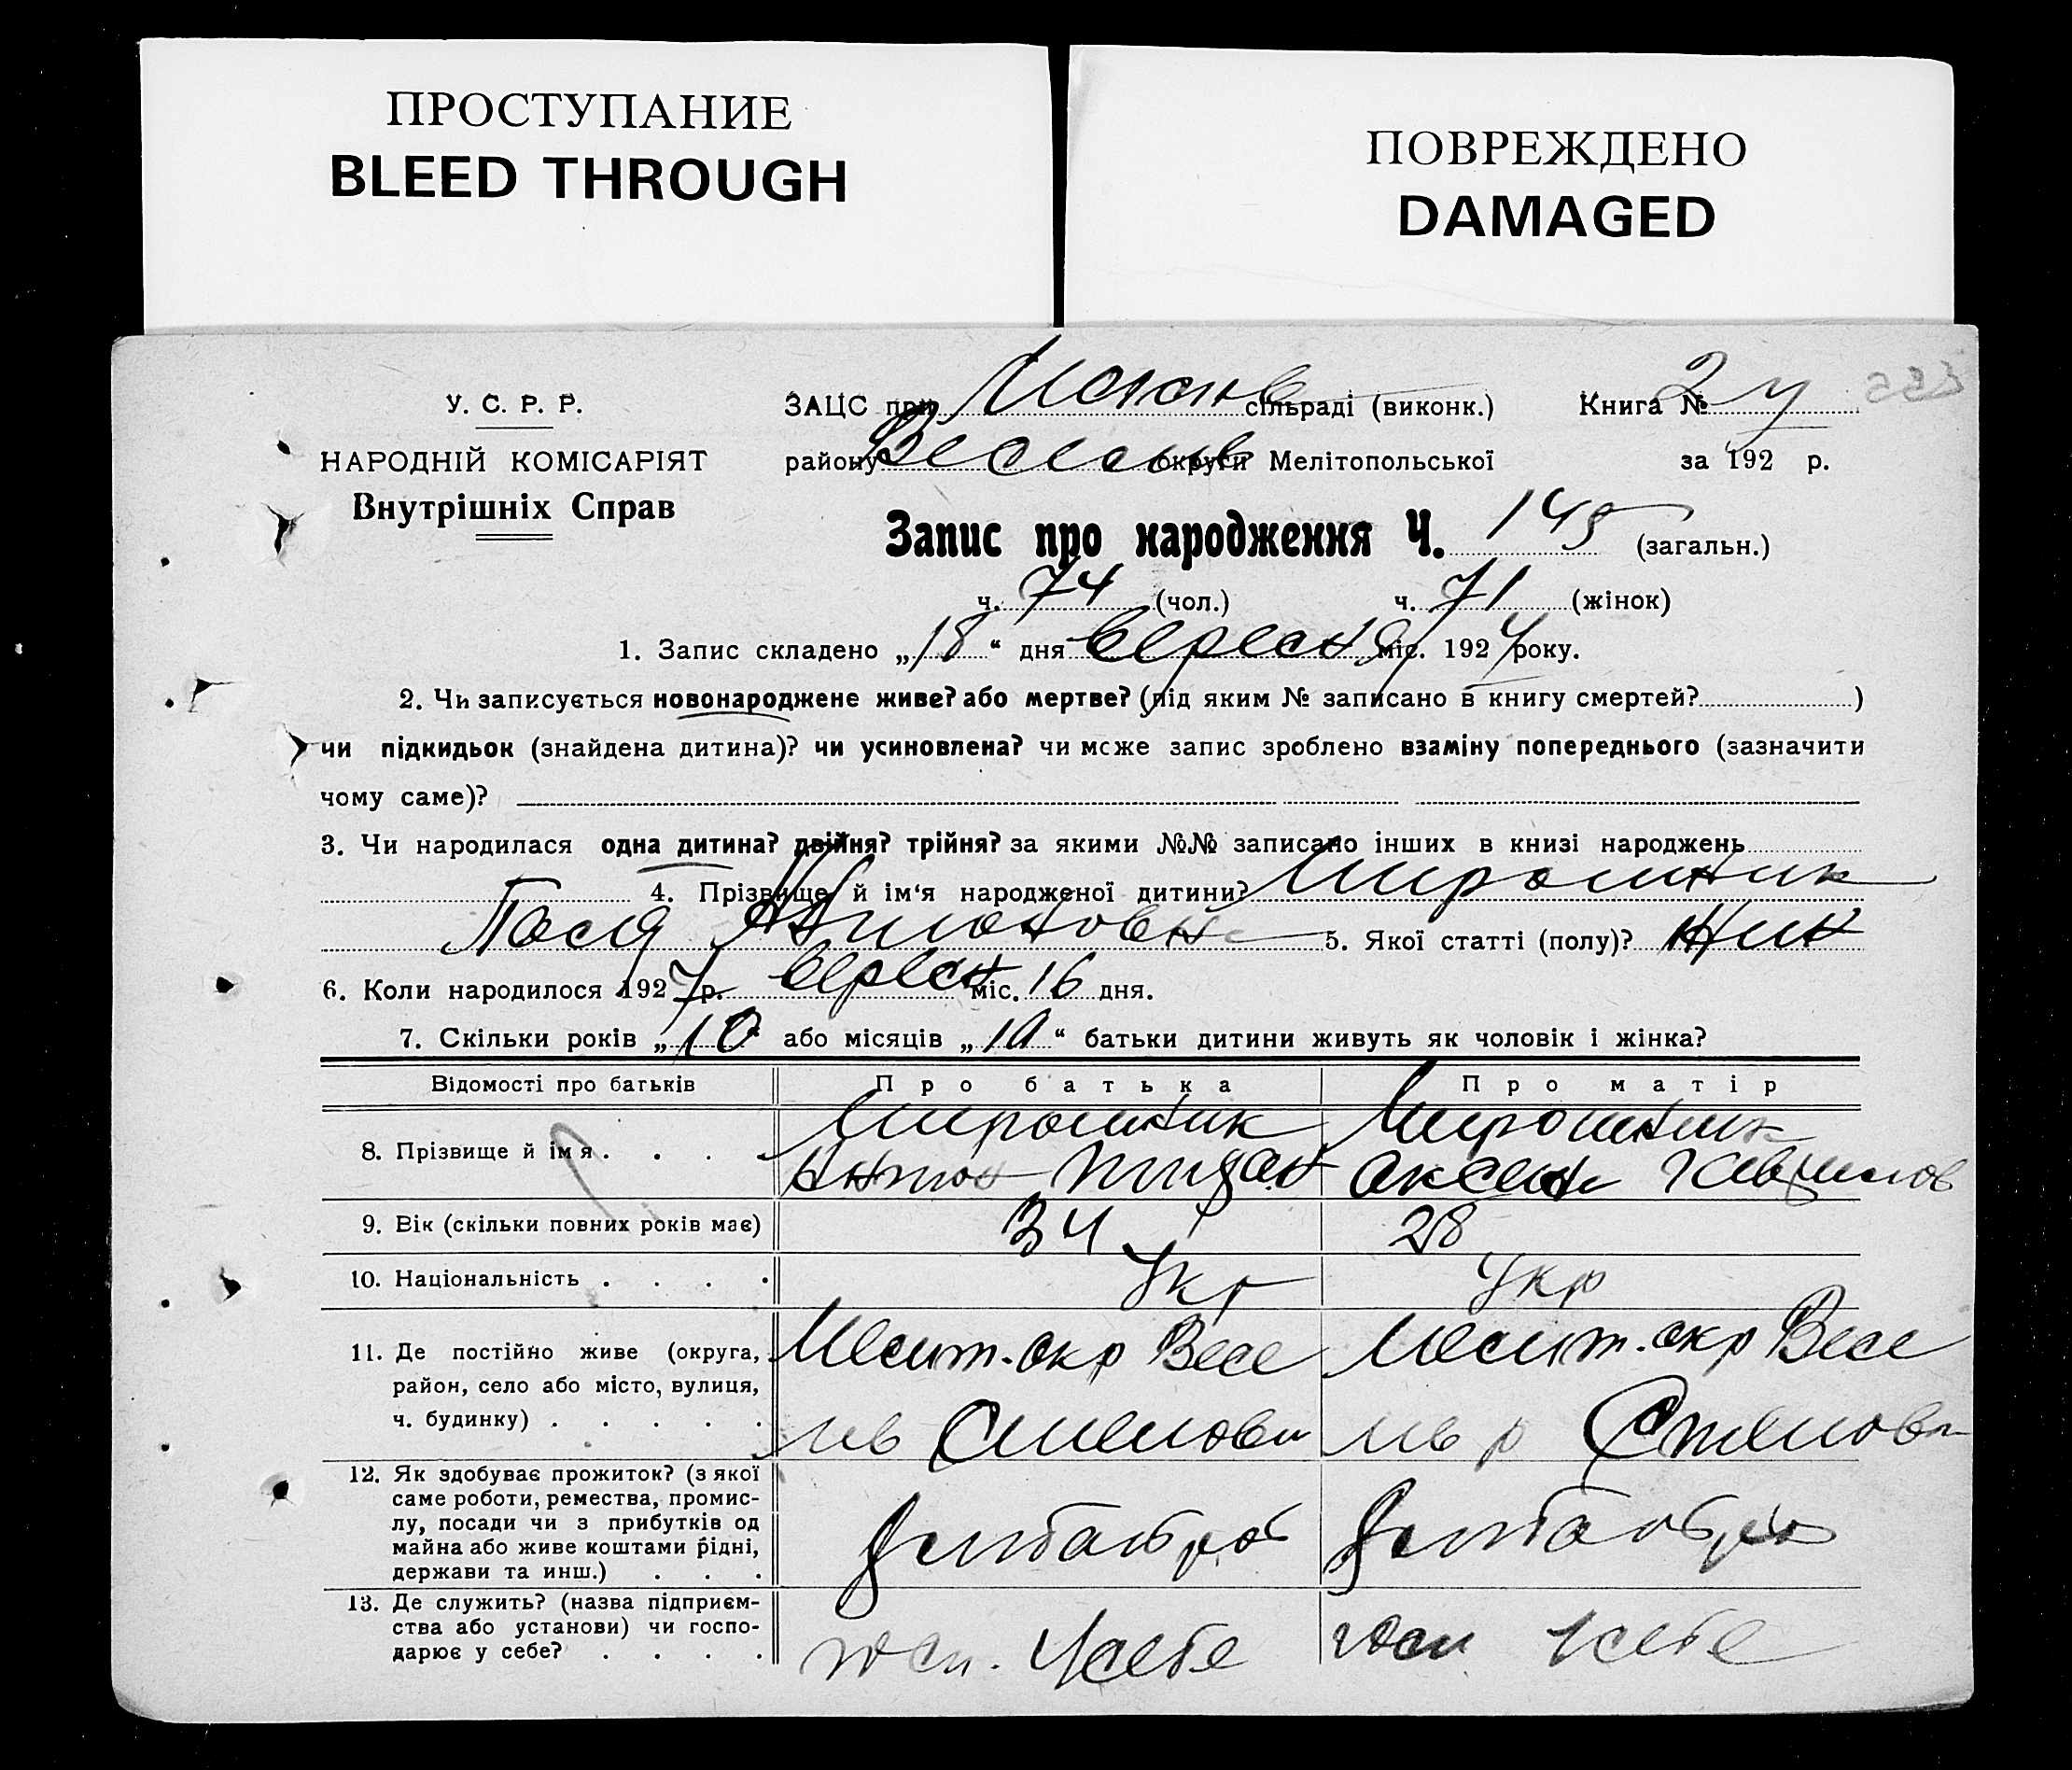 ПРОСТУПАНИЕ
BLEED THROUGH
ПОВРЕЖДЕНО
DAMAGED
У. С. Р. Р.
НАРОДНІЙ КОМІСАРІЯТ
Внутрішніх Справ
ЗАЦС при сільраді (виконк.) Книга №
району округи Мелітопольської за 192 р.
Запис про народження Ч. 145 (загальн.)
ч. 74 (чол.) ч. 71 (жінок)
1. Запис складено „18“ дня вересня міс. 1927 року.
2. Чи записується новонароджене живе? або мертве? (під яким № записано в книгу смертей? )
чи підкидьок (знайдена дитина)? чи усиновлена? чи може запис зроблено взаміну попереднього (зазначити
чому саме)?
3. Чи народилася одна дитина? двійня? трійня? за якими №№ записано інших в книзі народжень
4. Прізвище й ім‘я народженої дитини? Мирошник
Антоновн 5. Якої статті (полу)? жин
6. Коли народилося 1927 р. вересн міс. 16 дня.
7. Скільки років „10 або місяців „10“ батьки дитини живуть як чоловік і жінка?
Відомості про батьків Про батька Про матір
8. Прізвище й ім я . . . . Мирошник Мирошник
Антон
9. Вік (скільки повних років має) 34 28
10. Національність . . . . Укр Укр
11. Де постійно живе (округа, Мелит. окр Весе Мелит. окр Весе
район, село або місто, вулиця,
ч. будинку) . . . . .
12. Як здобуває прожиток? (з якої
саме роботи, ремества, промис-
лу, посади чи з прибутків од
майна або живе коштами рідні,
держави та инш.) . . .
13. Де служить? (назва підприєм-
ства або установи) чи госпо-
дарює у себе? . . . . госп. у себе госп у себе